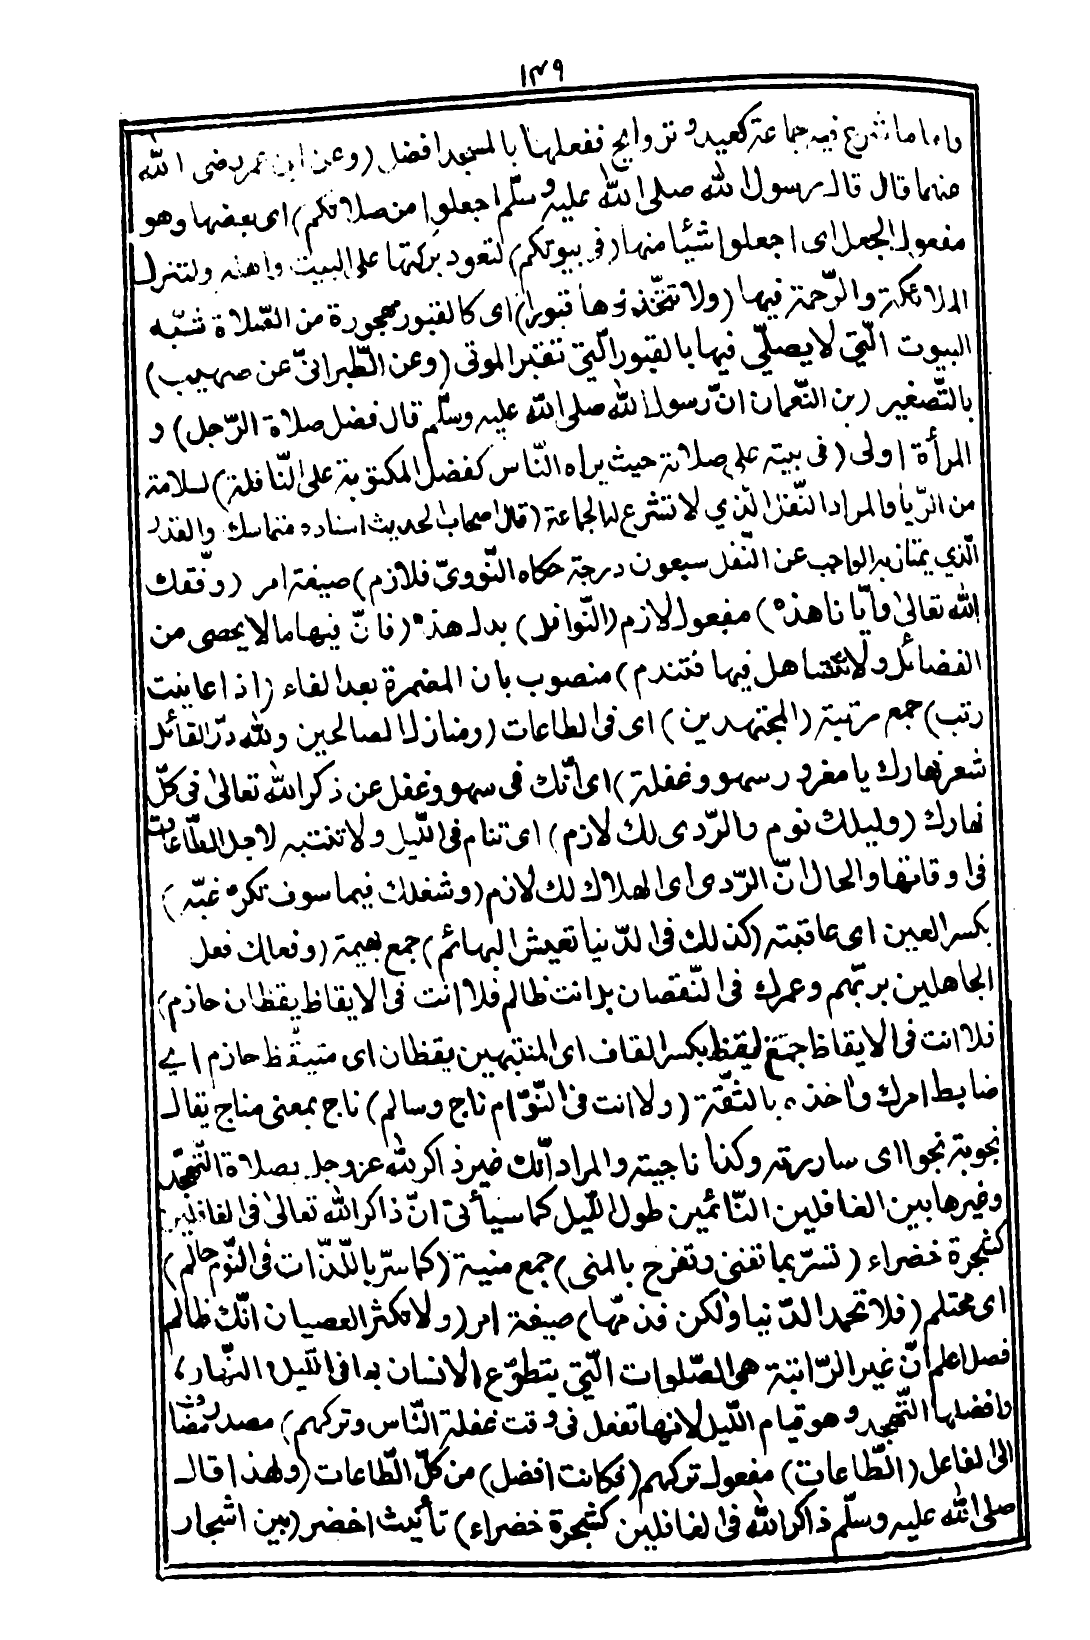 ١٤٩
واما ما شرع فيه جماعة كعيد و تزوايح ففعلها بالمسجد افضل (وعن ابن عمر رضى الله
عنهما قال قال رسول الله صلى الله عليه وسلّم اجعلوا من صلاتكم) اى بعضها وهو
مفعول الجعل اى اجعلوا شئيا منها (فى بيوتكم) لتعود بركتها على البيت واهله ولتنزل
الملائكة والرّحمة فيها (ولا تتّخذوها قبورا) اى كالقبور مهجورة من الصّلاة شبّه
البيوت الّتى لا يصلّى فيها بالقبور الّتى تقبر الموتى (وعن الطّبرانىّ عن صهيب)
بالتّصغير (بن النّعمان انّ رسول الله صلى الله عليه وسلّم قال فضل صلاة الرّجل) و
المرأة اولى (فى بيته على صلاته حيث يراه النّاس كفضل المكتوبة على النّافلة) لسلامة
من الرّيا والمراد النّفل الّذي لا تشرع له الجماعة (قال اصحاب الحديث اسناده متماسك والقدر
الّذي يمتاز به الواجب عن النّفل سبعون درجة حكاه النّووىّ فلازم) صيغة امر (وفّقك
الله تعالى وأيّانا هذه) مفعول لازم (النّوافل) بدل هذه (فانّ فيها ما لا يحصى من
الفضائل ولا تتساهل فيها فتندم) منصوب بان المضمرة بعد الفاء (اذا عاينت
رتب) جمع مرتبة (المجتهدين) اى فى الطاعات (ومنازل الصالحين ولله درّ القائل
شعر نهارك يا مغرور سهو وغفلة) اى انّك فى سهو وغفل عن ذكر الله تعالى فى كلّ
نهارك (وليلك نوم والرّدى لك لازم) اى تنام فى اللّيل ولا تنتبه لاجل الطّاعات
فى اوقاتها والحال انّ الرّدى اى الهلاك لك لازم (وشغلك فيما سوف تكره غبّه)
بكسر العين اى عاقبته (كذلك فى الدّنيا تعيش البهائم) جمع بهيمة (وفعالك فعل
الجاهلين بربّهم وعمرك فى النّقصان بل انت ظالم فلا انت فى الايقاظ يقظان حازم)
فلا انت فى الايقاظ جمتغ ليقظ بكسر القاف اى المنتبهين يقظان اى متيقّظ حازم اي
ضابط امرك واخذه بالثقّة (ولا انت فى النّوّام ناج وسالم) ناج بمعنى مناج يقال
نجوبته نجوا اى ساررته وكذا ناجيته والمراد أنّك غير ذاكر لله عز وجل بصلاة التّهجّد
وغيرها بين الغافلين النّائمين طول اللّيل كما سيأتى انّ ذاكر الله تعالى فى الغافلين
كشجرة خضراء (تسرّ بما تفنى وتفرح بالمنى) جمع منية (كما سرّ باللّذّات فى النّوم حالم)
اى محتلم (فلا تحمد الدّنيا ولكن فذمّها) صيغة امر (ولا تكثر العصيان انّك ظالم
فصل اعلم انّ غير الرّاتبة هى الصّلوات الّتى يتطوّع الانسان بها فى اللّيل و النّهار،
وافضلها التّهجد وهو قيام اللّيل لانها تفعل فى وقت غفلة النّاس وتركهم) مصدر مضا ف
الى الفاعل (الطّاعات) مفعول تركهم (فكانت افضل) من كلّ الطّاعات (ولهذا قال
صلى الله عليه وسلّم ذاكر الله فى الغافلين كشجرة خضراء) تأنيث اخضر (بين اشجار